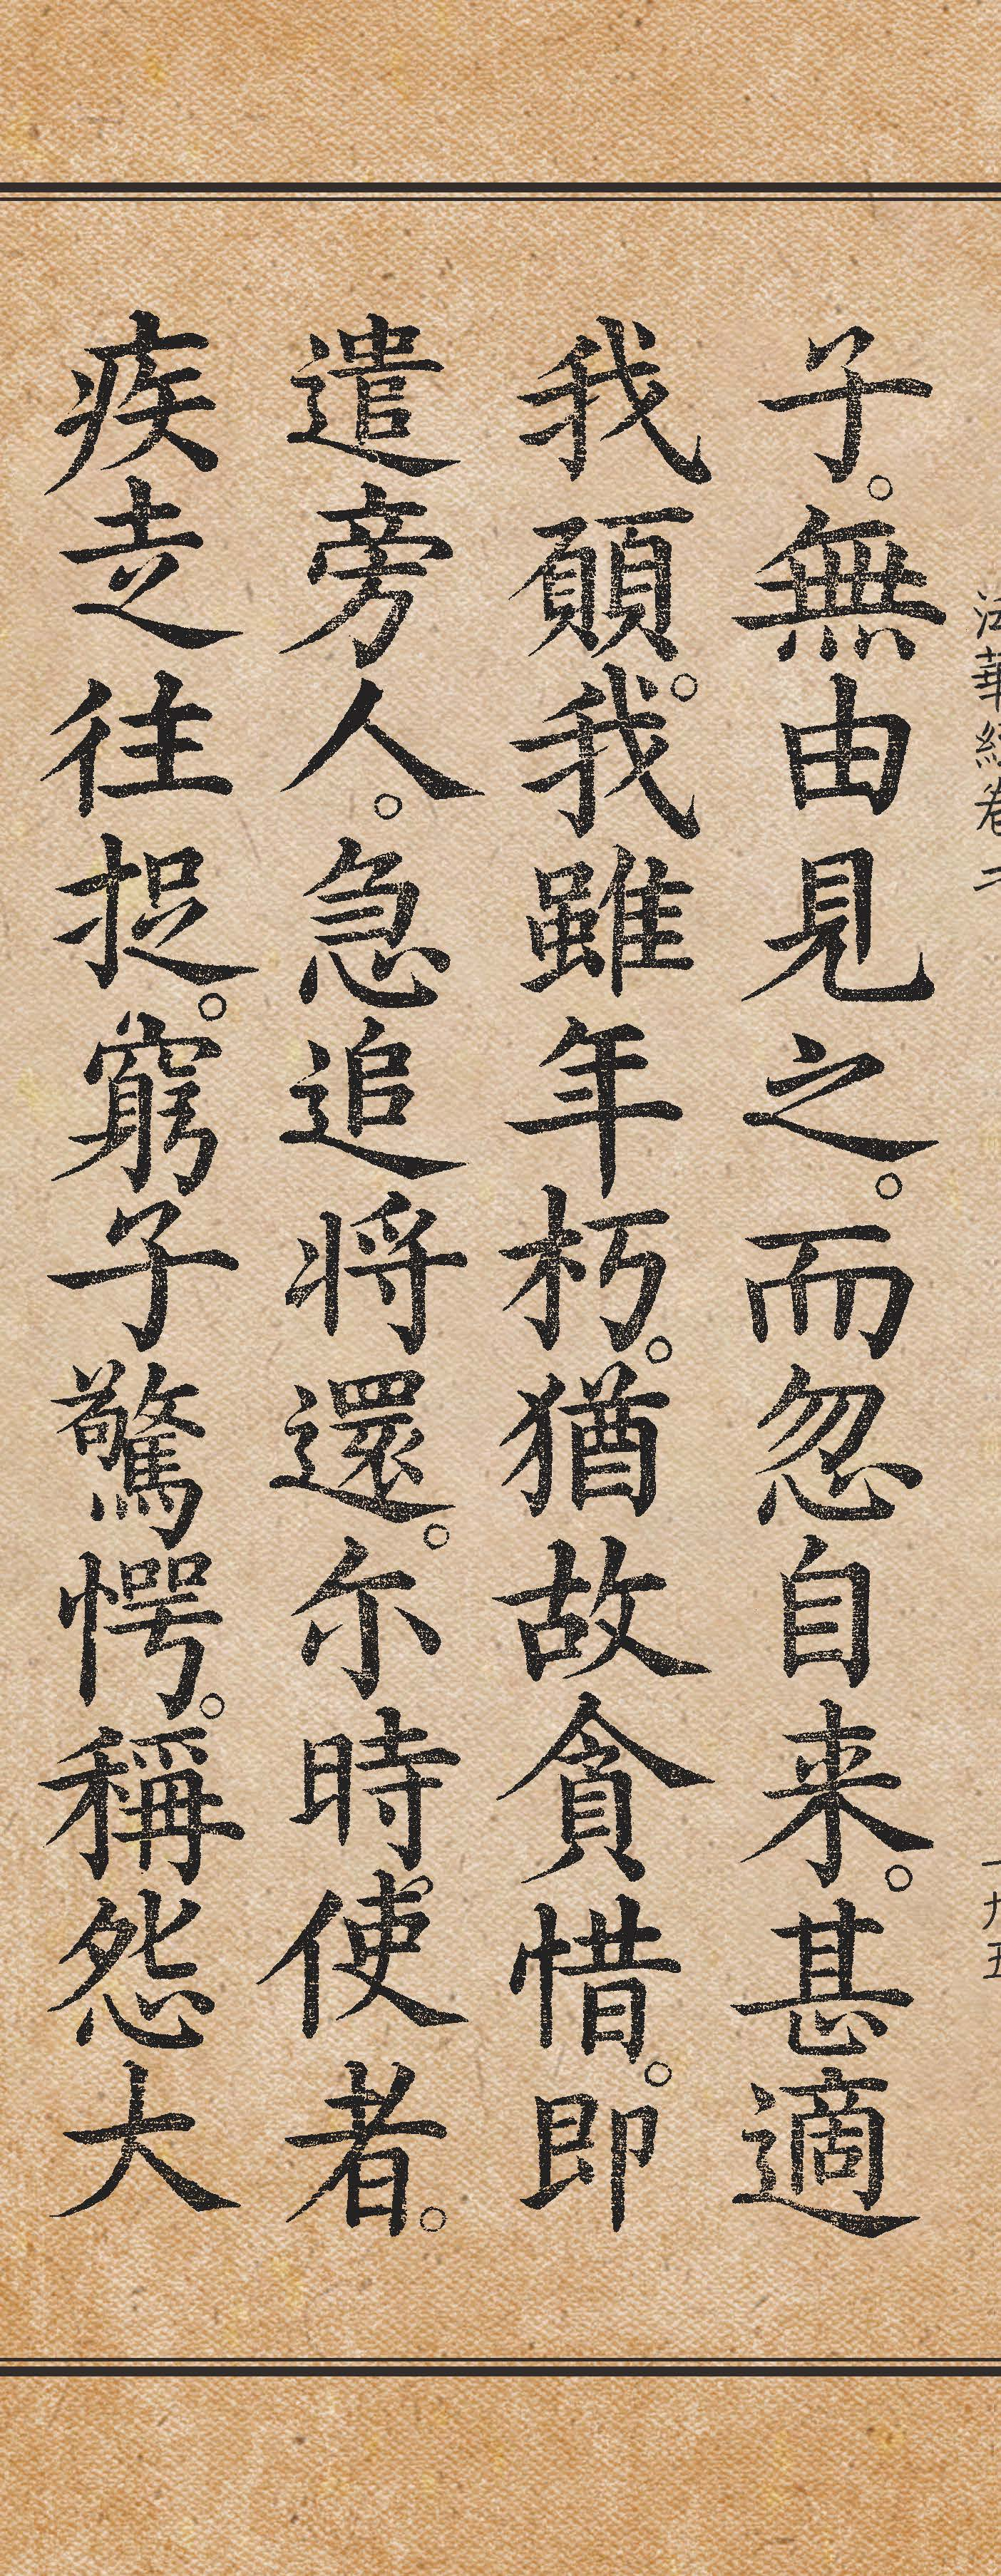 法華經卷二
一九五
子。無由見之。而忽自来。甚適
我願。我雖年朽。猶故貪惜。即
遣旁人。急追將還。尔時使者。
疾走往捉。窮子驚愕。稱怨大